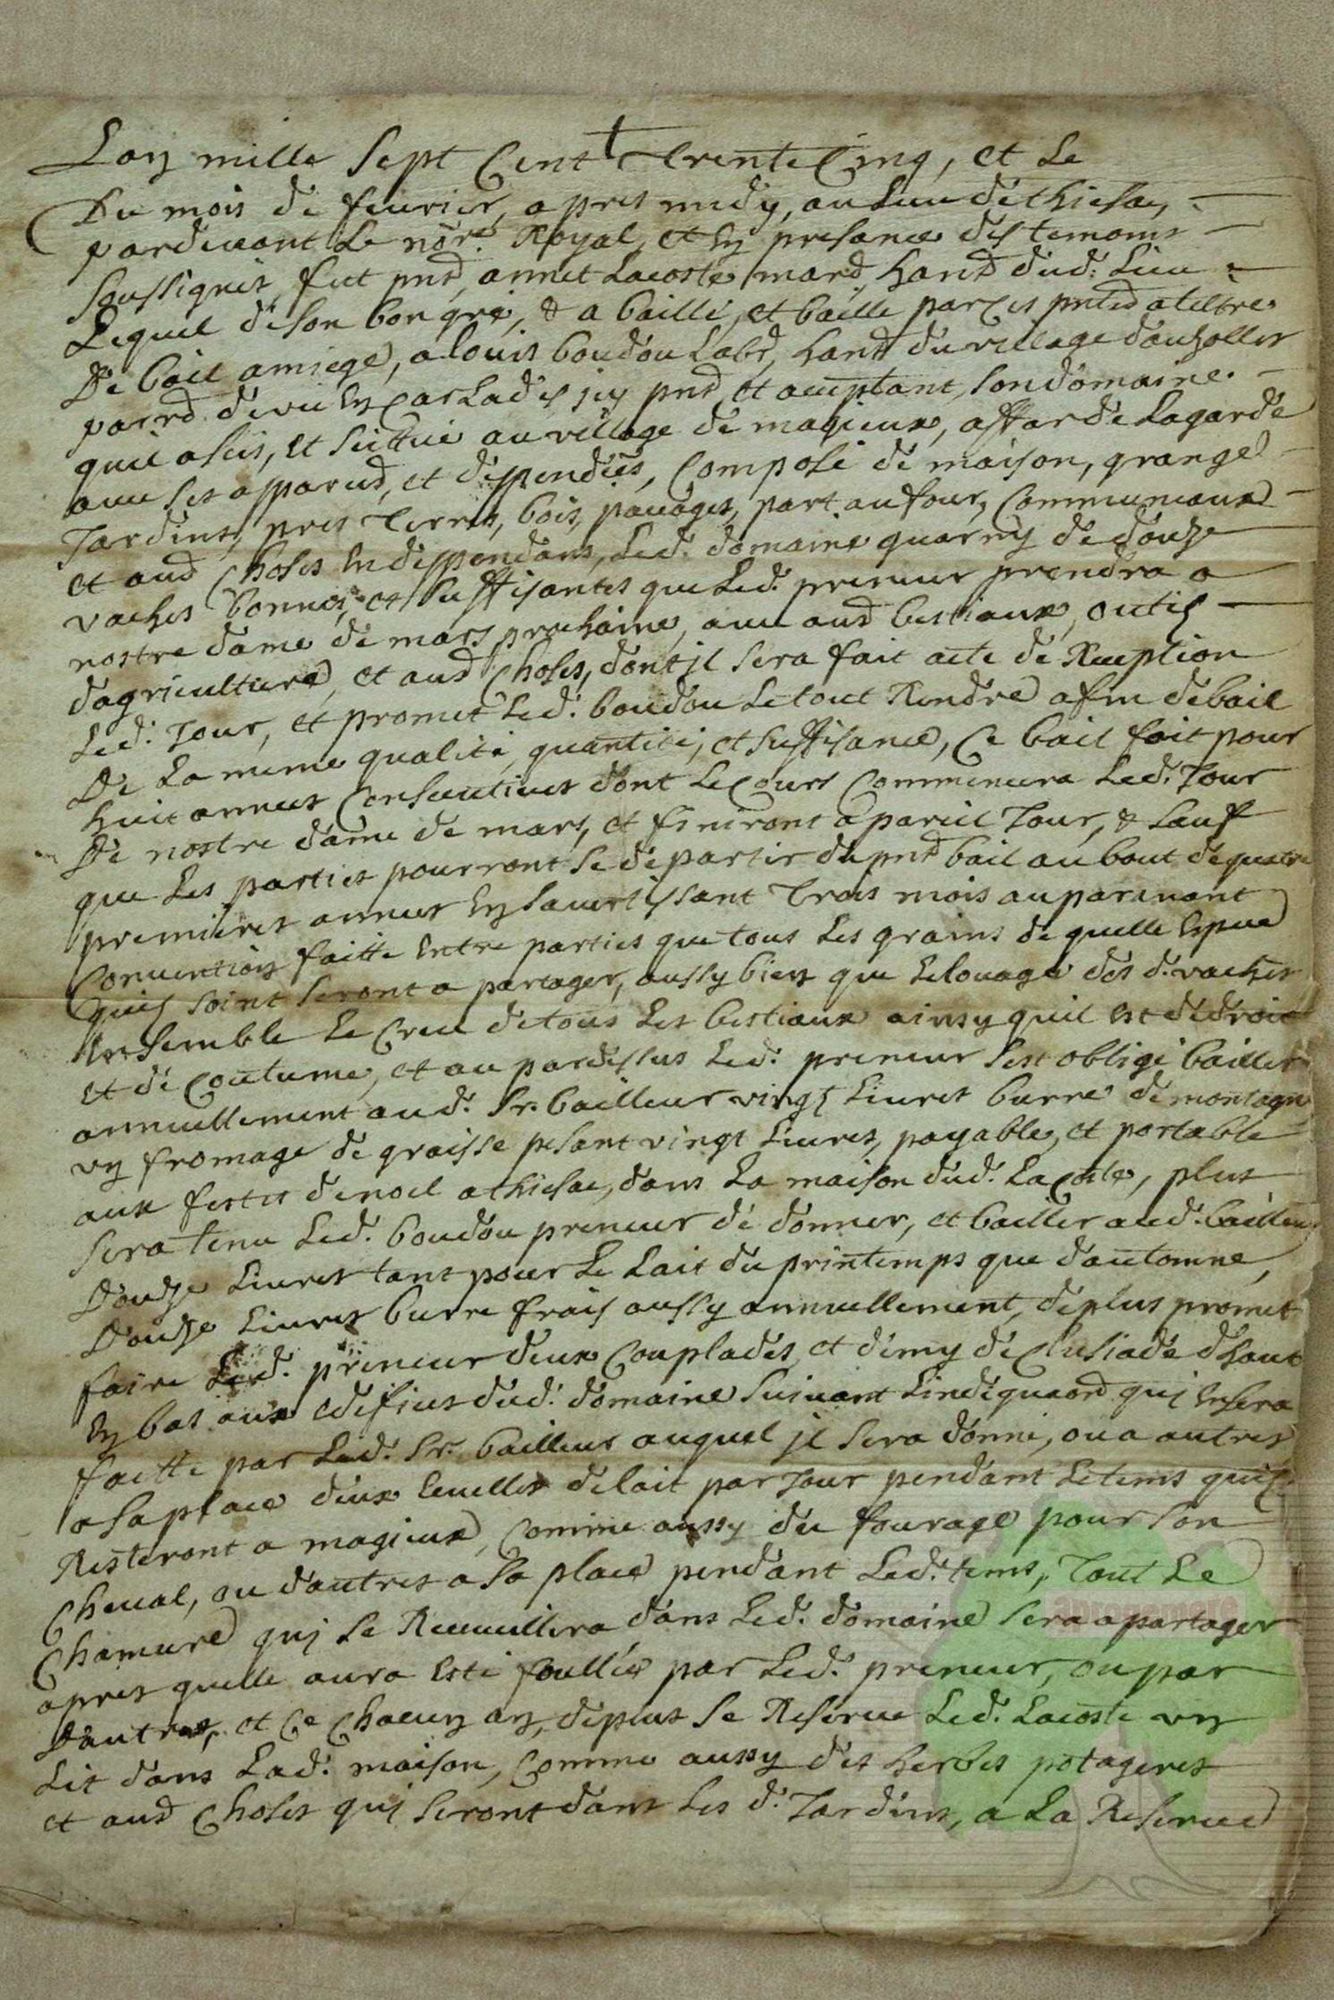 Lan mille sept cent trente cinq, et le
Du mois de feuvrier, apres midy, au lieu de thiesac,
pardevant le nore. Royal, et en presance des temoins
soussignés fut pnt, annet Lacoste mard. hant. dud. lieu
Lequel de son bon gré, & a baillé, et baille par ces pntes a tiltre
De bail amiege, a louis boudou labr, hant. du village
parr. de vic en carlades icy pnt, et aceptant, son domaine
quil a sis, et scittué au village de magieux, affar de Lagarde
avec ses apparces, et deppendces, composé de maison, grange
Jardins, prés Terres, bois, pacages, part au four, communeaux
et autres choses en deppendans, Led. domaine guarny de douze
vaches bonnes, et suffisantes que Led. preneur prendra a
nostre dame de mars prochaine, avec autres bestiaux, outils
dagriculture, et autres choses, dont jl sera fait acte de Reception
Led. Jour, et promet Led. boudou Le tout Rendre a fin de bail
De La meme qualité, quantité, et suffisance, Ce bail fait pour
huit années consecutives dont Le cours commencera Led. Jour
De nostre dame de mars, et finiront a pareil Jour, & sauf
que Les parties pourront se departir du pnt bail au bout de quatre
premieres années en savertissant trois mois auparavant
Convention faitte entre parties que tous Les grains de quelle espece
quils soint seront a partager, aussy bien que Le louage des d. vaches
Ensemble Le creu de tous Les bestiaux ainsy quil est de droit
et de coutume, et au pardessus Led. preneur sest obligé bailler
annuellement aud. Sr. bailleur vingt Livres burre de montagne
vn fromage de graisse pesant vingt Livres, payable, et portable
aux festes de noel a thiesac, dans La maison dud. Lacoste, plus
sera tenu Led. boudou preneur de donner, et bailler aud. bailleur
Douze Livres tant pour Le Lait du printemps que dautomne,
Douze Livres burre frais aussy annuellement, de plus promet
faire Led. preneur deux couplades, et demy de clusiade dhaut
En bas aux edifices dud. domaine suivant Lindequaon quj en sera
faitte par Led. Sr. bailleur auquel jl sera donné, ou a autres
a sa place deux de lait par Jour pendant Le tems quils
Resteront a magieux, comme aussy du fourage pour son
Cheval, ou dautres a sa place pendant Led. tems, Tout Le
Chamure quj se Recueillera dans Led. domaine sera a partager
apres quelle aura esté foullée par Led. preneur, ou par
Dautres, et ce chacun an, de plus se Reserve Led. Lacoste vn
Lit dans Lad. maison, comme aussy des herbes potageres
et autres choses quj seront dans Les d. Jardins, a La Reserve